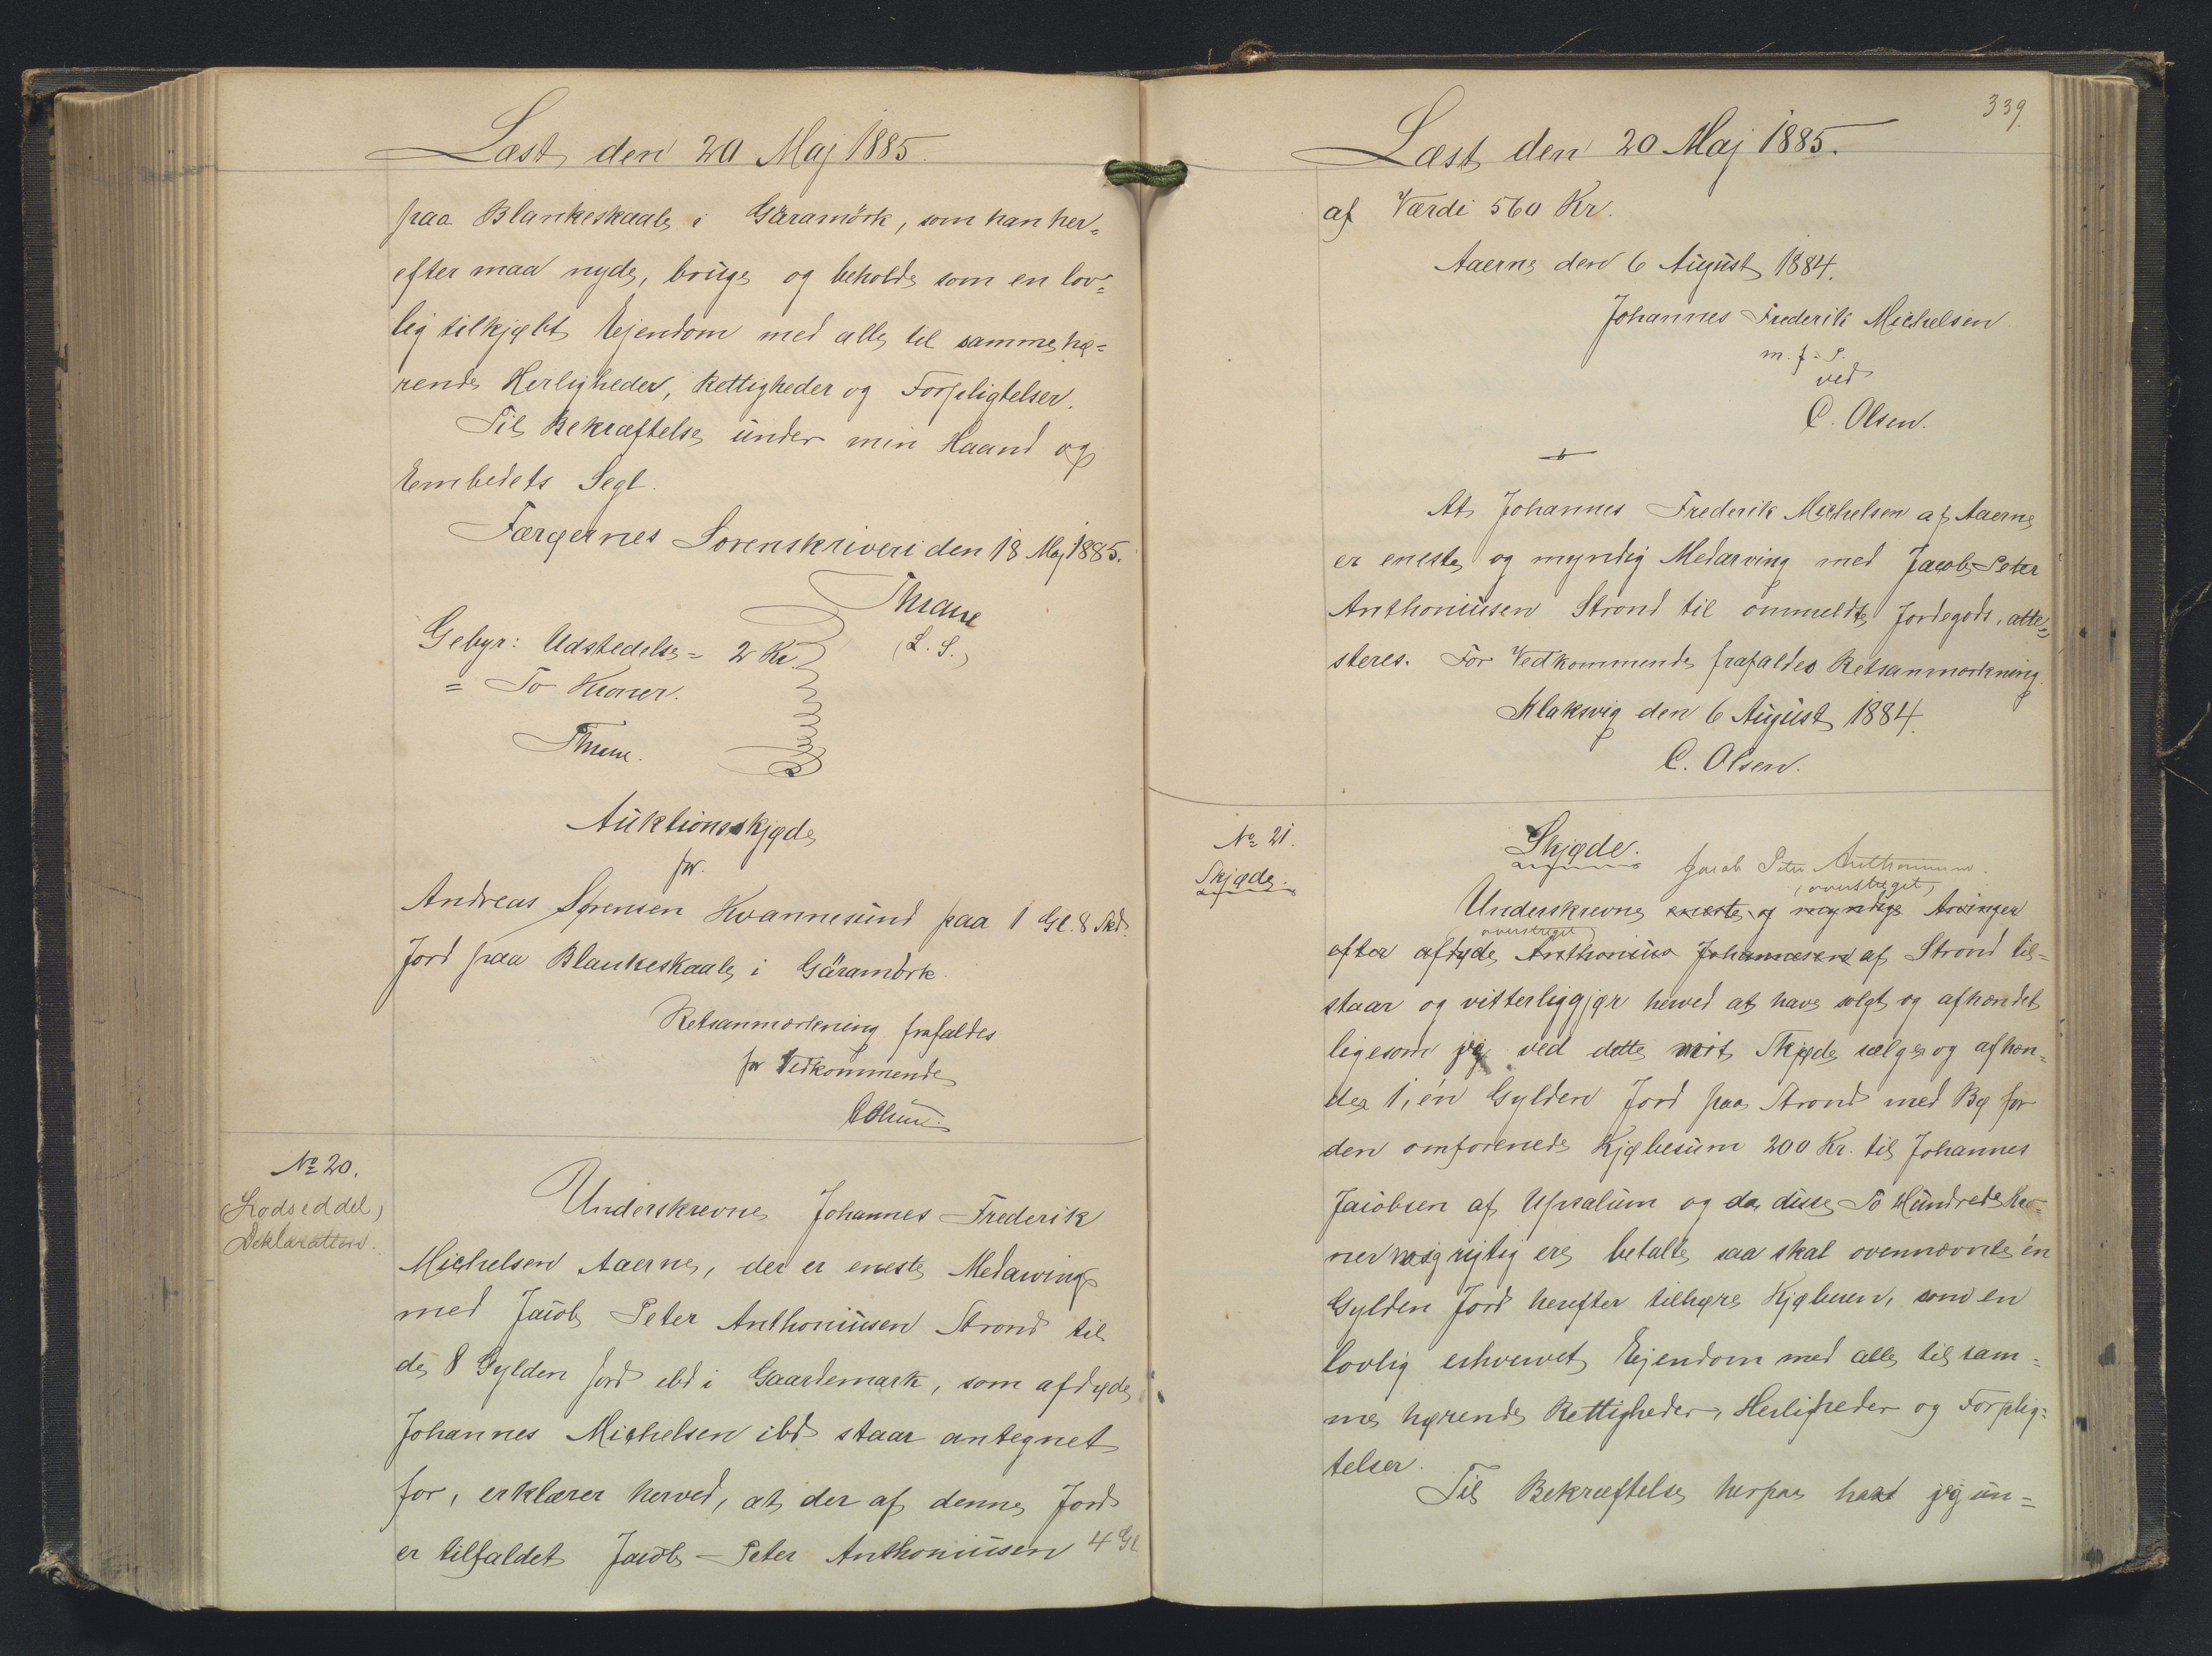 Læst den 20 Maj 1885.
paa Blankeskaale i Gäramörk, som han her=
efter maa nyde, bruge og beholde som en lov=
lig tilkjøbt Ejendom med alle til samme hø=
rende Herligheder, Rettigheder og Forpligtelser.
Til Bekræftelse under min Haand og
Embedets Segl.
Færøernes Sorenskriveri den 18 Maj 1885.
Thrane
(L. S.)
Gebyr: Udstedelse = 2 Kr.
= To Kroner.
Thrane.
Auktionsskjøde
for
Andreas Sørensen Kvannesund paa 1 Gl. 8 Skd.
Jord paa Blankeskaale i Gäramörk.
Retsanmærkning frafaldes
for Vedkommende
C Olsen.
№ 20.
Lodseddel,
Deklaration.
Underskrevne Johannes Frederik
Michelsen Aaerne, der er eneste Medarving
med Jacob Peter Anthoniusen Strond til
de 8 Gylden Jord ibd i Gaardemark, som afdøde
Johannes Michelsen ibd staar antegnet
for, erklærer herved, at der af denne Jord
er tilfaldet Jacob Peter Anthoniusen 4 Gl
339.
Læst den 20 Maj 1885.
af Værdi 560 Kr.
Aaerne den 6 August 1884.
Johannes Frederik Michelsen
m. f. P.
ved
C. Olsen.
At Johannes Frederik Michelsen af Aaerne
er eneste og myndig Medarving med Jacob Peter
Anthoniusen Strond til ommeldte Jordegods, atte=
steres. For Vedkommende frafaldes Retsanmærkning.
Klaksvig den 6 August 1884.
C. Olsen.
№ 21.
Skjøde.
Skjøde.
Jacob Peter Anthoniusen.
(overstreget)
Underskrevne eneste og myndige Arvinger
(overstreget)
efter afdøde Anthonius Johannesen af Strond til=
staar og vitterliggjør herved at have solgt og afhændet
ligesom jeg ved dette mit Skjøde sælger og afhæn=
der 1, én Gylden Jord paa Strond med Bø for
den omforenede Kjøbesum 200 Kr. til Johannes
Jacobsen af Upsalum og da disse To Hundrede Kro=
ner mig rigtig ere betalte saa skal ovennævnte én
Gylden Jord herefter tilhøre Kjøberen, som en
lovlig erhvervet Ejendom med alle til sam=
me hørende Rettigheder, Herligheder og Forplig=
telser.
Til Bekræftelse herpaa har jeg un=